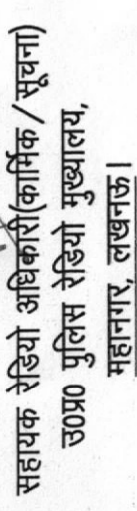 सहायक रेडियो अधिकारी(कार्मिक/सूचना)
उ0प्र0 पुलिस रेडियो मुख्यालय,
महानगर, लखनऊ।